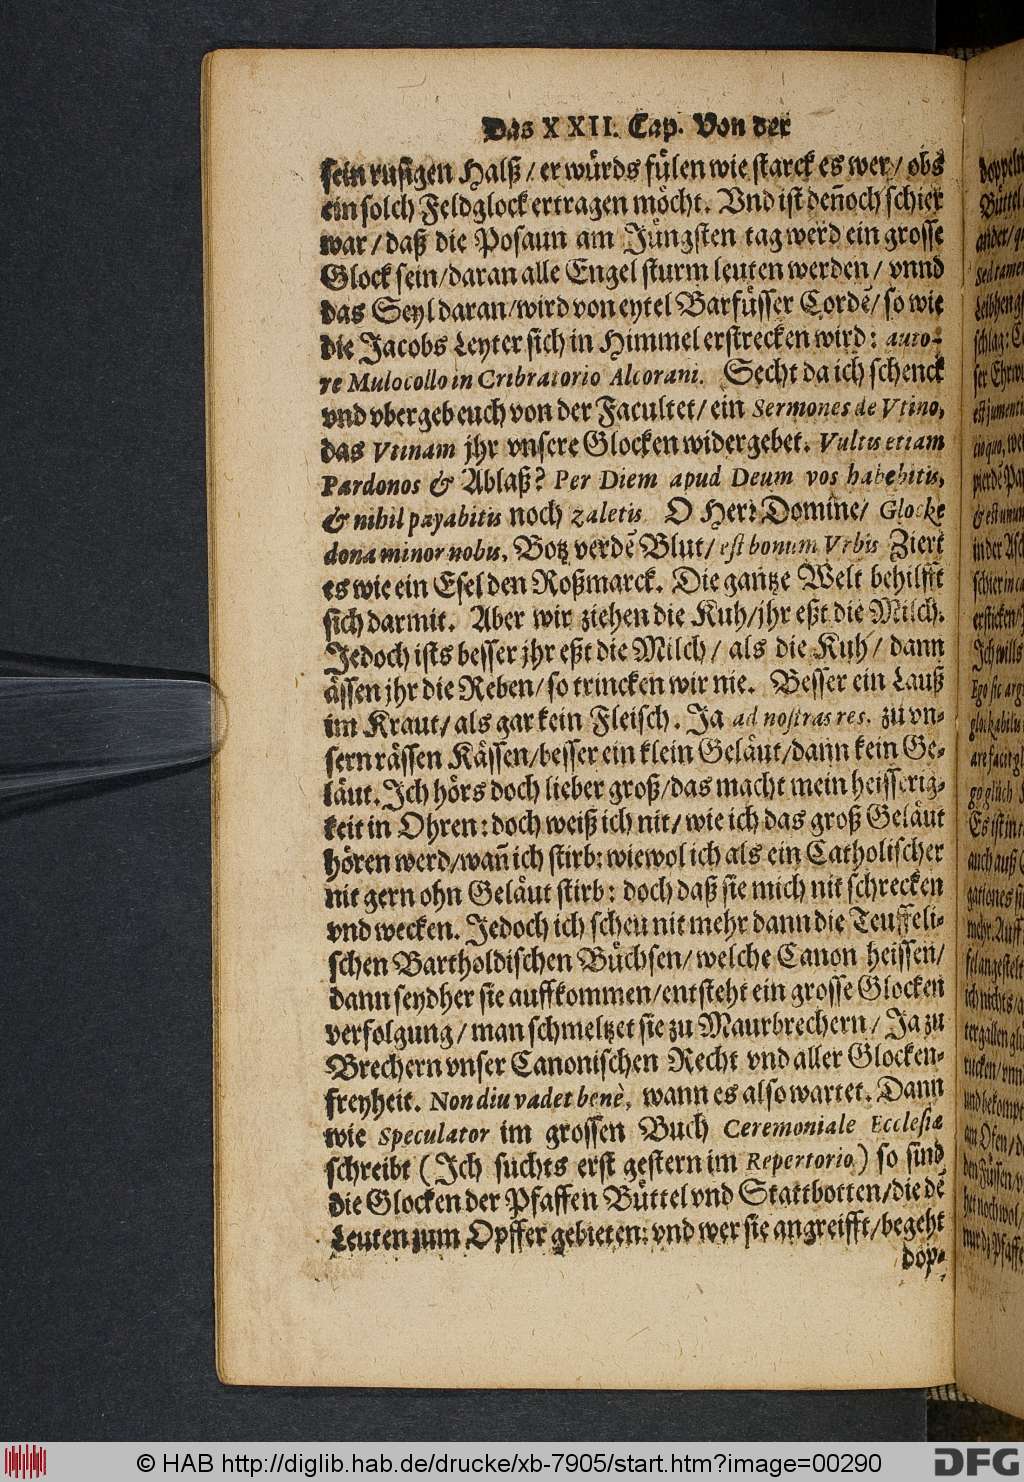 Das XXII. Cap. Von der
sein rusigen Halß / er wuͤrds fuͤlen wie starck es wer / obs
ein solch Feldglock ertragen moͤcht. Vnd ist deñoch schier
war / daß die Posaun am Juͤngsten tag werd ein grosse
Glock sein / daran alle Engel sturm leuten werden / vnnd
das Seyl daran / wird von eytel Barfuͤsser Cordẽ / so wie
die Jacobs Leyter sich in Himmel erstrecken wird: auto-
re Mulocollo in Cribratorio Alcorani. Secht da ich schenck
vnd vbergeb euch von der Facultet / ein Sermones de Vtino,
das Vtinam jhr vnsere Glocken widergebet. Vultis etiam
Pardonos & Ablaß? Per Diem apud Deum vos habebitis,
& nihil payabitis noch zaletis. O Herr Domine / Glocke
dona minor nobis, Botz verdẽ Blut / est bonum Vrbis Ziert
es wie ein Esel den Roßmarck. Die gantze Welt behilfft
sich darmit. Aber wir ziehen die Kuh / jhr eßt die Milch.
Jedoch ists besser jhr eßt die Milch / als die Kuh / dann
aͤssen jhr die Reben / so trincken wir nie. Besser ein Lauß
im Kraut / als gar kein Fleisch. Ja ad nostras res. zu vn-
sern raͤssen Kaͤssen / besser ein klein Gelaͤut / dann kein Ge-
laͤut. Ich hoͤrs doch lieber groß / das macht mein heisserig-
keit in Ohren: doch weiß ich nit / wie ich das groß Gelaͤut
hoͤren werd / wañ ich stirb: wiewol ich als ein Catholischer
nit gern ohn Gelaͤut stirb: doch daß sie mich nit schrecken
vnd wecken. Jedoch ich scheu nit mehr dann die Teuffeli-
schen Bartholdischen Buͤchsen / welche Canon heissen /
dann seydher sie auffkommen / entsteht ein grosse Glocken
verfolgung / man schmeltzet sie zu Maurbrechern / Ja zu
Brechern vnser Canonischen Recht vnd aller Glocken-
freyheit. Non diu vadet benè, wann es also wartet. Dann
wie Speculator im grossen Buch Ceremoniale Ecclesiæ
schreibt (Ich suchts erst gestern im Repertorio) so sind
die Glocken der Pfaffen Buͤttel vnd Stattbotten / die dẽ
Leuten zum Opffer gebieten: vnd wer sie angreifft / begeht
dop-
© HAB http://diglib.hab.de/drucke/xb-7905/start.htm?image=00290
DFG